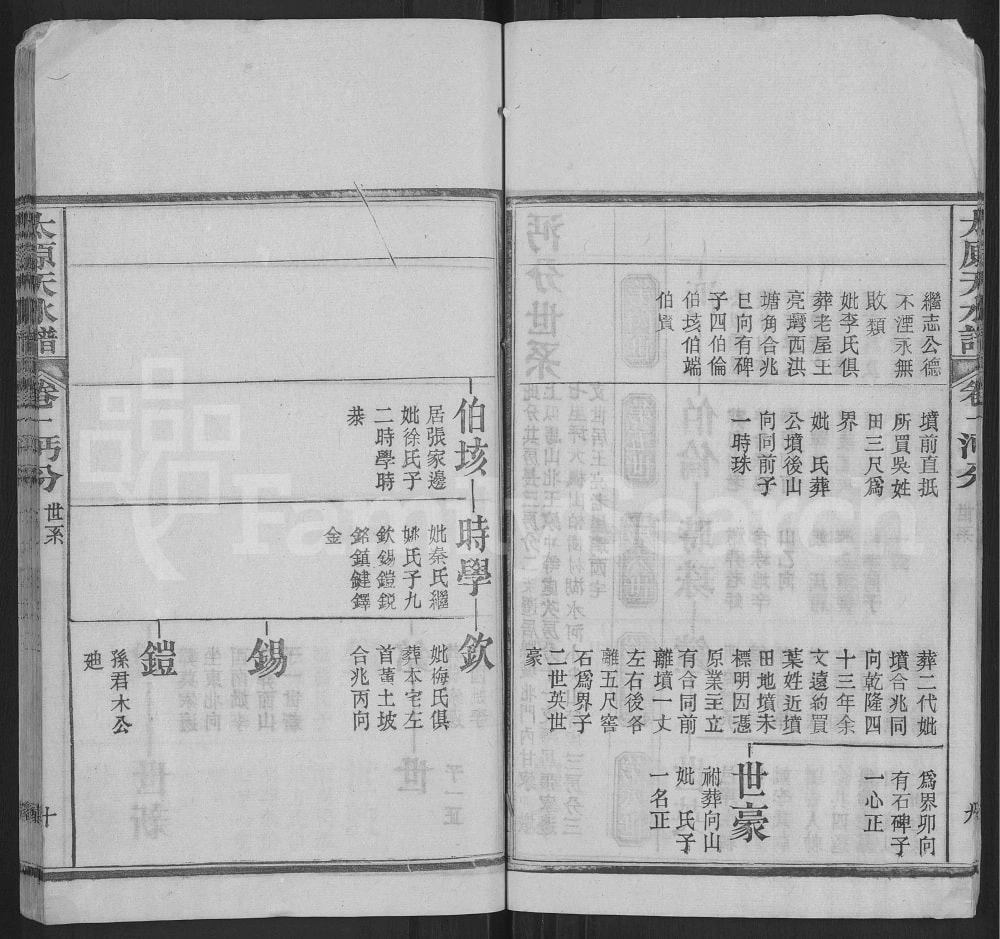 繼志公德
不湮永無
敗類
妣李氏俱
葬老屋王
亮塆西洪
塘角合兆
巳向有碑
子四伯倫
伯垓伯端
伯賢
墳前直抵
所買吳姓
田三尺為
界
妣　氏葬
公墳後山
向同前子
一時珠
葬二代妣
墳合兆同
向乾隆四
十三年余
文遠約買
葉姓近墳
田地墳未
標明因憑
原業主立
有合同前
離墳一丈
左右後各
離五尺窖
石為界子
二世英世
豪
為界卯向
有石碑子
一心正
世豪
祔葬向山
妣　氏子
一名正
伯垓
居張家邊
妣徐氏子
二時學時
恭
時學
妣秦氏繼
姚氏子九
欽錫鎧鋭
銘鎮鍵鐸
金
欽
妣梅氏俱
葬本宅左
首蕾土坡
合兆丙向
錫
鎧
孫君木公
廸
太原天水譜
卷一
沔分
世系
十
FamilySearch